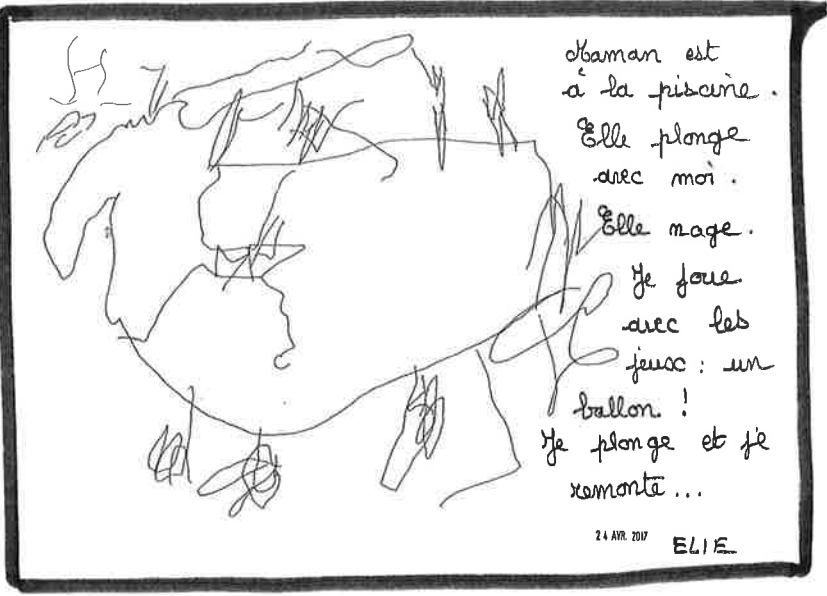 Maman est
à la piscine.
Elle plonge
avec moi.
Elle nage.
Je joue
avec les
jeux : un
ballon !
Je plonge et je
remonte...
24 AVR. 2017
ELIE